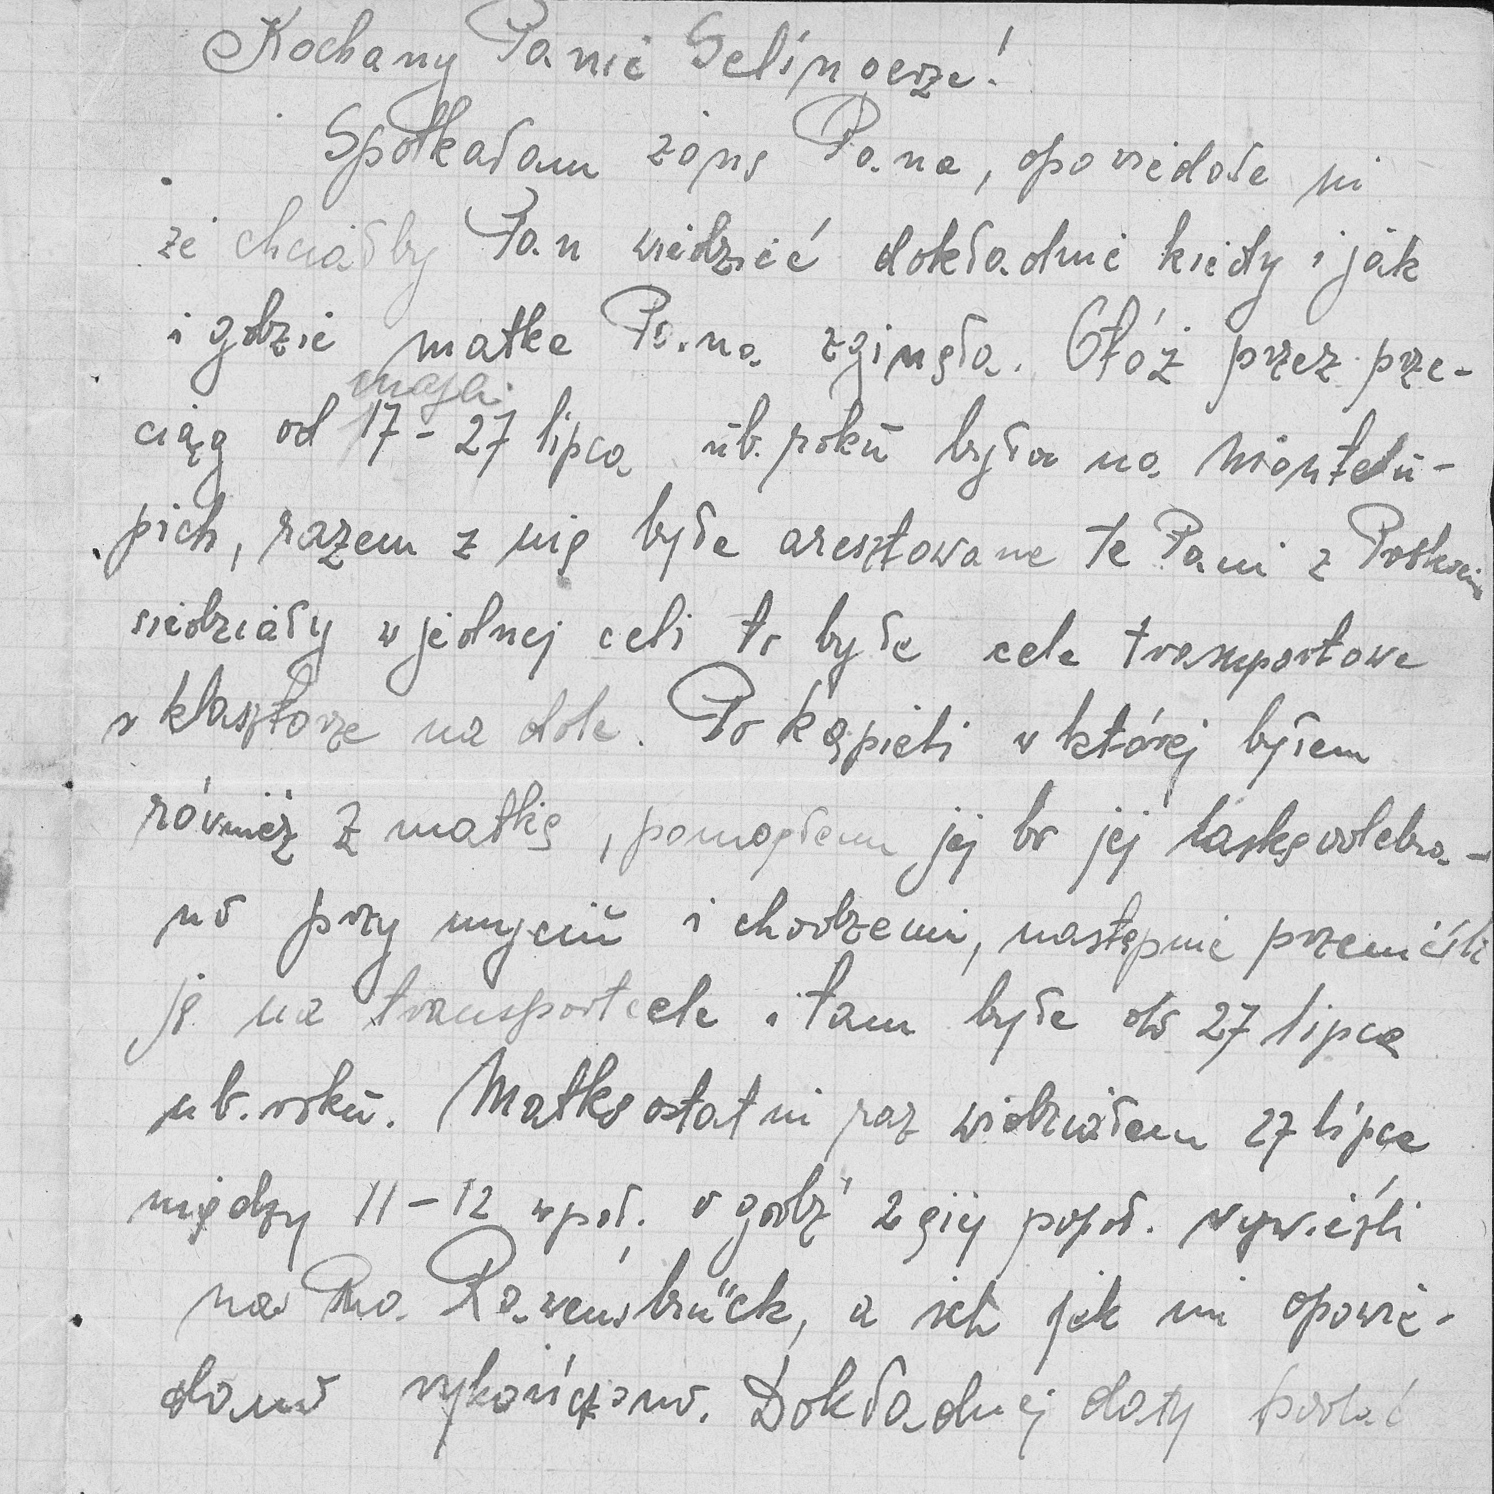 Kochany Panie Selingerze!
Spotkałam żonę Pana, opowiedała mi
że chciałby Pan wiedzieć dokładnie kiedy i jak
i gdzie matka Pana zginęła. Otóż przez prze-
maja
ciąg od 17-27 lipca ub. roku była na Montelu-
pich, razem z nią były aresztowane te Pani z
siedziały w jednej celi to była cela transportowa
w klasztorze na dole. Po kąpieli w której byłem
również z matką, pomogłem jej bo jej laskę odebra-
no przy myciu i chodzeniu, następnie przenieśli
ją na transportcele i tam była do 27 lipca
ub. roku. Matkę ostatni raz widziałem 27 lipca
między 11-12 wpoł. o godz 2giej popoł. wywieźli
nas Ravensbrück, a ich jak mi opowie-
dano wykończono. Dokładnej daty podać